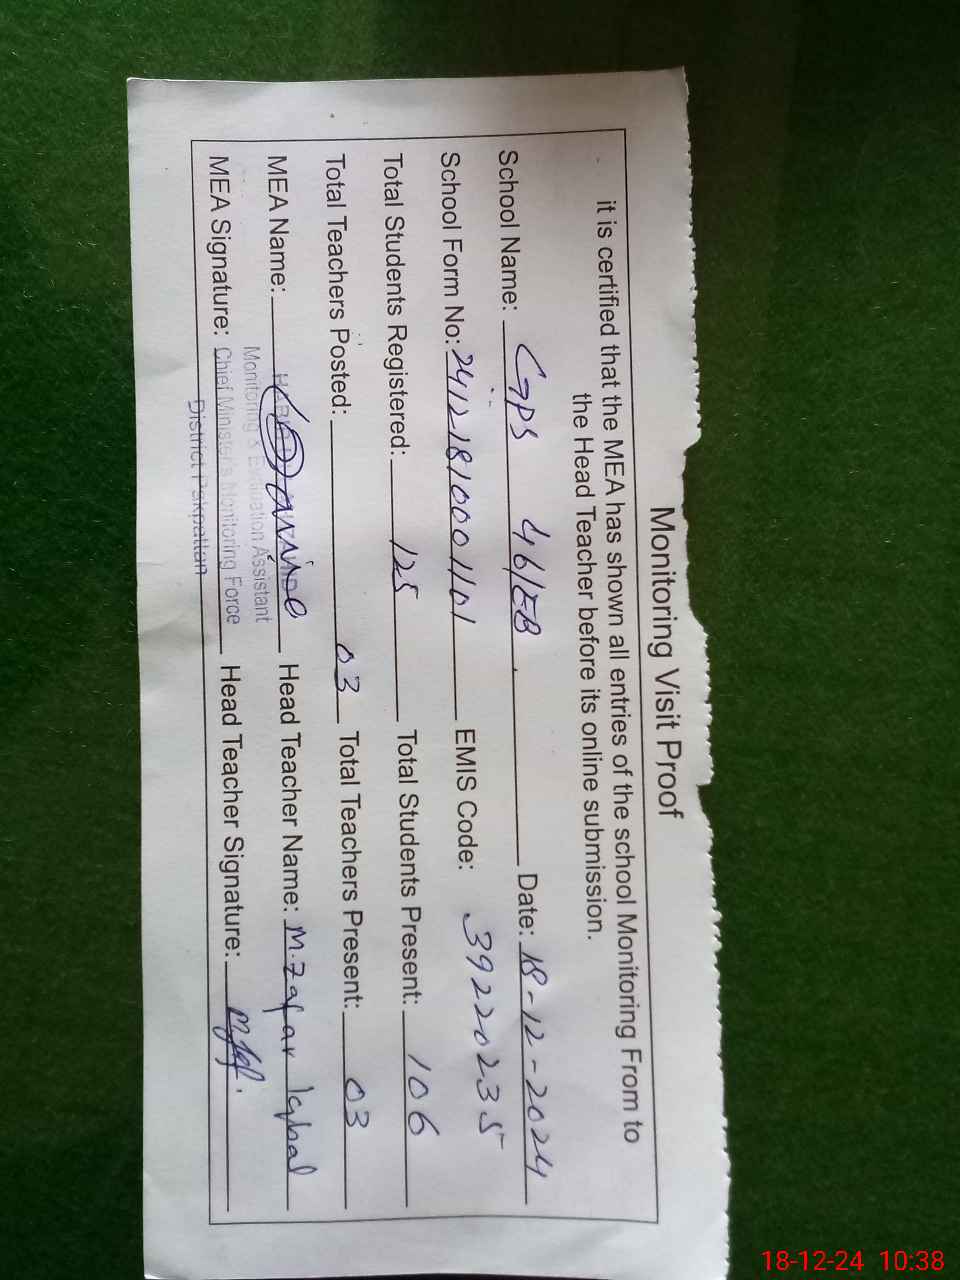 Monitoring Visit Proof
it is certified that the MEA has shown all entries of the school Monitoring From to
the Head Teacher before its online submission.
School Name: GPS 46/EB. Date: 18-12-2024
School Form No: 24121810001101 EMIS Code: 39220235
Total Students Registered: 125 Total Students Present: 106
Total Teachers Posted: 03 Total Teachers Present: 03
MEA Name: Head Teacher Name: M. Zafar Iqbal
Monitoring & Evaluation Assistant
MEA Signature: Chief Minister's Monitoring Force Head Teacher Signature:
District Pakpattan
18-12-24 10:38